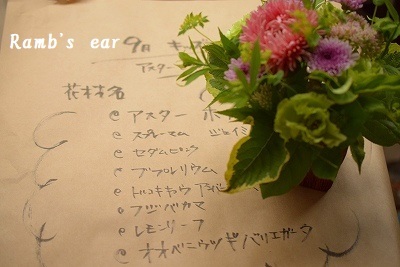 Ramb's ear
9月 キッズ
アスター
花材名
アスター ポ
スプレーマム ジェイミ
セダムピンク
ブプレリウム
トルコキキョウ
フジバカマ
レモンリーフ
オオベニウツギバリエガータ